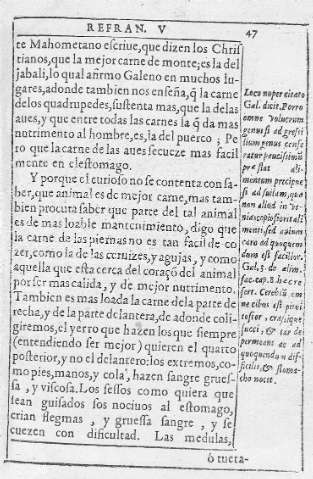 REFRAN. V
47
te Mahometano escriue, que dizen los Chris
tianos, que la mejor carne de monte; es la del
jabali, lo qual afirmo Galeno en muchos lu-
gares, adonde tambien nos enseña, q̃ la carne
delos quadrupedes, sustenta mas, que la delas
aues, y que entre todas las carnes la q̃ da mas
nutrimento al hombre, es, la del puerco; Pe
ro que la carne de las aues se cueze mas facil
mente en el estomago.
Y porque el curioso no se contenta con sa-
ber, que animal es de mejor carne, mas tam-
bien procuta saber que parte del tal animal
es de mas loable mantenimiento, digo que
la carne de las piernas no es tan facil de co
zer, como la de las ceruizes, y agujas, y como
aquella que esta cerca del coraçõ del animal
por ser mas calida, y de mejor nutrimento.
Tambien es mas loada la carne de la parte de
recha, y de la parte delantera, de adonde coli-
giremos, el yerro que hazen los que siempre
(entendiendo ser mejor) quieren el quarto
posterior, y no el delantero: los extremos, co-
mo pies, manos, y cola, hazen sangre grues-
sa, y viscosa. Los sessos como quiera que
sean guisados son nociuos al estomago,
crian flegmas, y gruessa sangre, y se
cuezen con dificultad. Las medulas,
ò tueta-
Loco nuper citato
Gal. dixit. Porro
omne volucrum
genus si ad gressi
lium genus conse
ratur paucissimũ
præstat ali-
mentum precipue
si ad suilam, qua
non aliud in
menti, sed auium
caro ad coquen
dum est facilior.
Gal. 3. de alim.
fac. cap. 8. hæc re
fert. Cerebrũ om
ne cibus est pitui
tosior, crassique
succi, & tar de
permeans ac ad
coquendum dif-
ficilis, & stoma-
cho nocet.